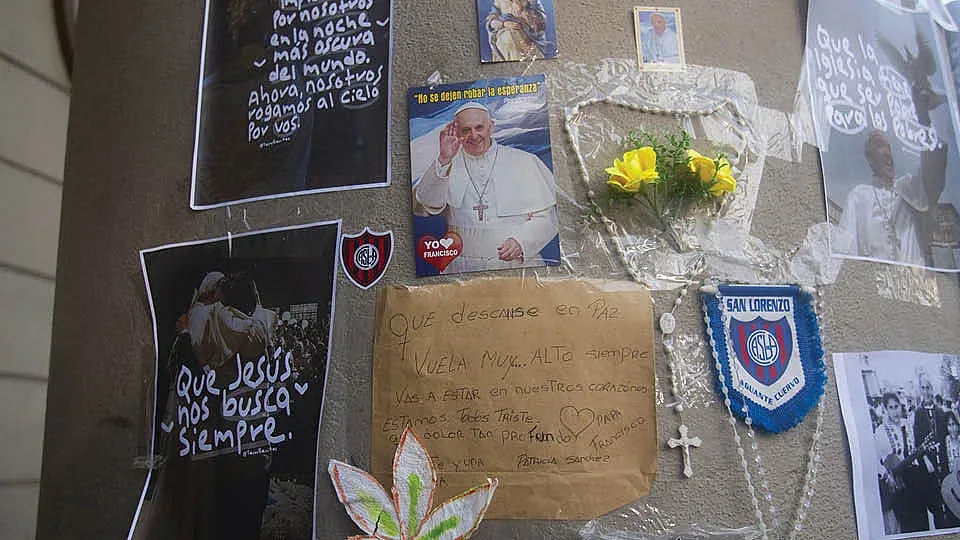 Por nosotros
en la noche
más oscura
del mundo.
Ahora, nosotros
rogamos al cielo
Por vos.
"No se dejen robar la esperanza"
YO
FRANCISCO
Que la
Iglesia
que se
Para los Pobres
CASLA
Que Jesús
nos busca
siempre.
QUE descanse en PAZ
VUELA MUY... ALTO siempre
VAS A ESTAR en nuestros corazones
ESTAMOS Todos TRISTE
DOLOR TAN PROFundo
PAPA
FRANCISCO
Te y una Patricia Sanchez
SAN LORENZO
CASLA
AGUANTE CUERVO